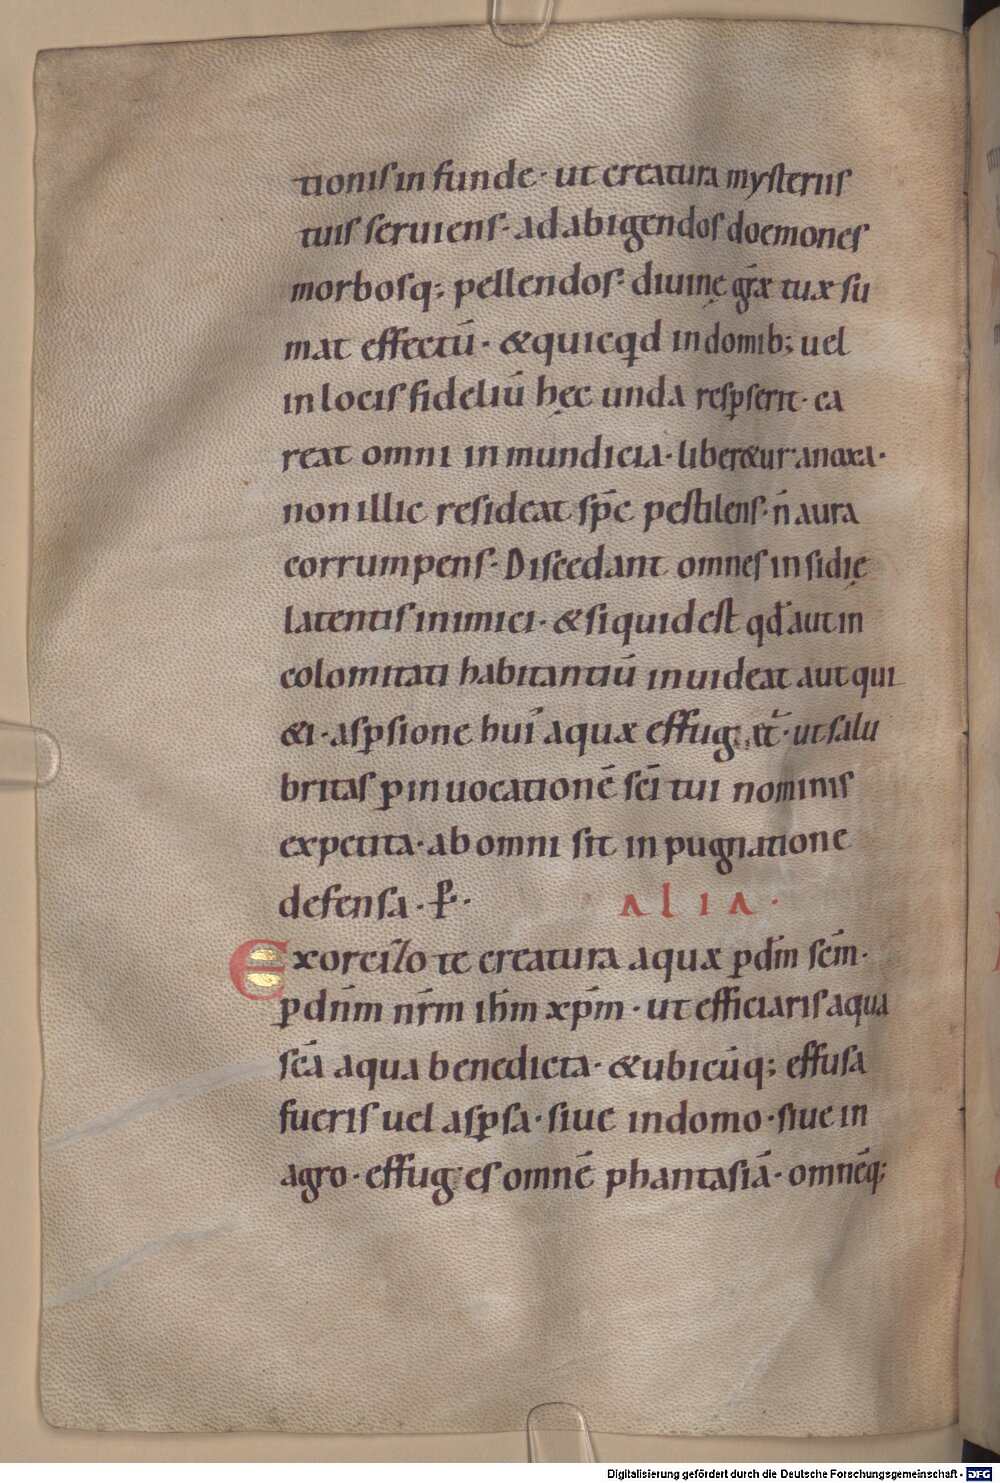 tionis in funde · ut creatura mysteriis
tuis seruiens · ad abigendos doemones
morbosq; pellendos · diuinę gr̄æ tuæ su
mat effectū · & quicqd in domib; uel
in locis fideliū hęc unda resp̱serit · ca
reat omni inmundicia · liber&ur a noxa ·
non illic resideat sp̄c pestilens · n̄ aura
corrumpens · Discedant omnes insidię
latentis inimici · & si quid est qd̄ aut in
colomitati habitantiū inuideat aut qui
&i · asp̱sione hui' aquæ effug
· ut salu
britas p̱ inuocationē sc̄i tui nominis
expetita · ab omni sit inpugnatione
defensa · P̱ ·
ALIA ·
Exorcizo te creatura aquæ p̱ dm̄ scm̄ ·
p̱ dnm̄ nr̄m ihm̄ xpm̄ · ut efficiaris aqua
sc̄a aqua benedicta · & ubicūq; effusa
fueris uel asp̱sa · siue in domo · siue in
agro · effuges omnē phantasiā · omnēq;
Digitalisierung gefördert durch die Deutsche Forschungsgemeinschaft - DFG